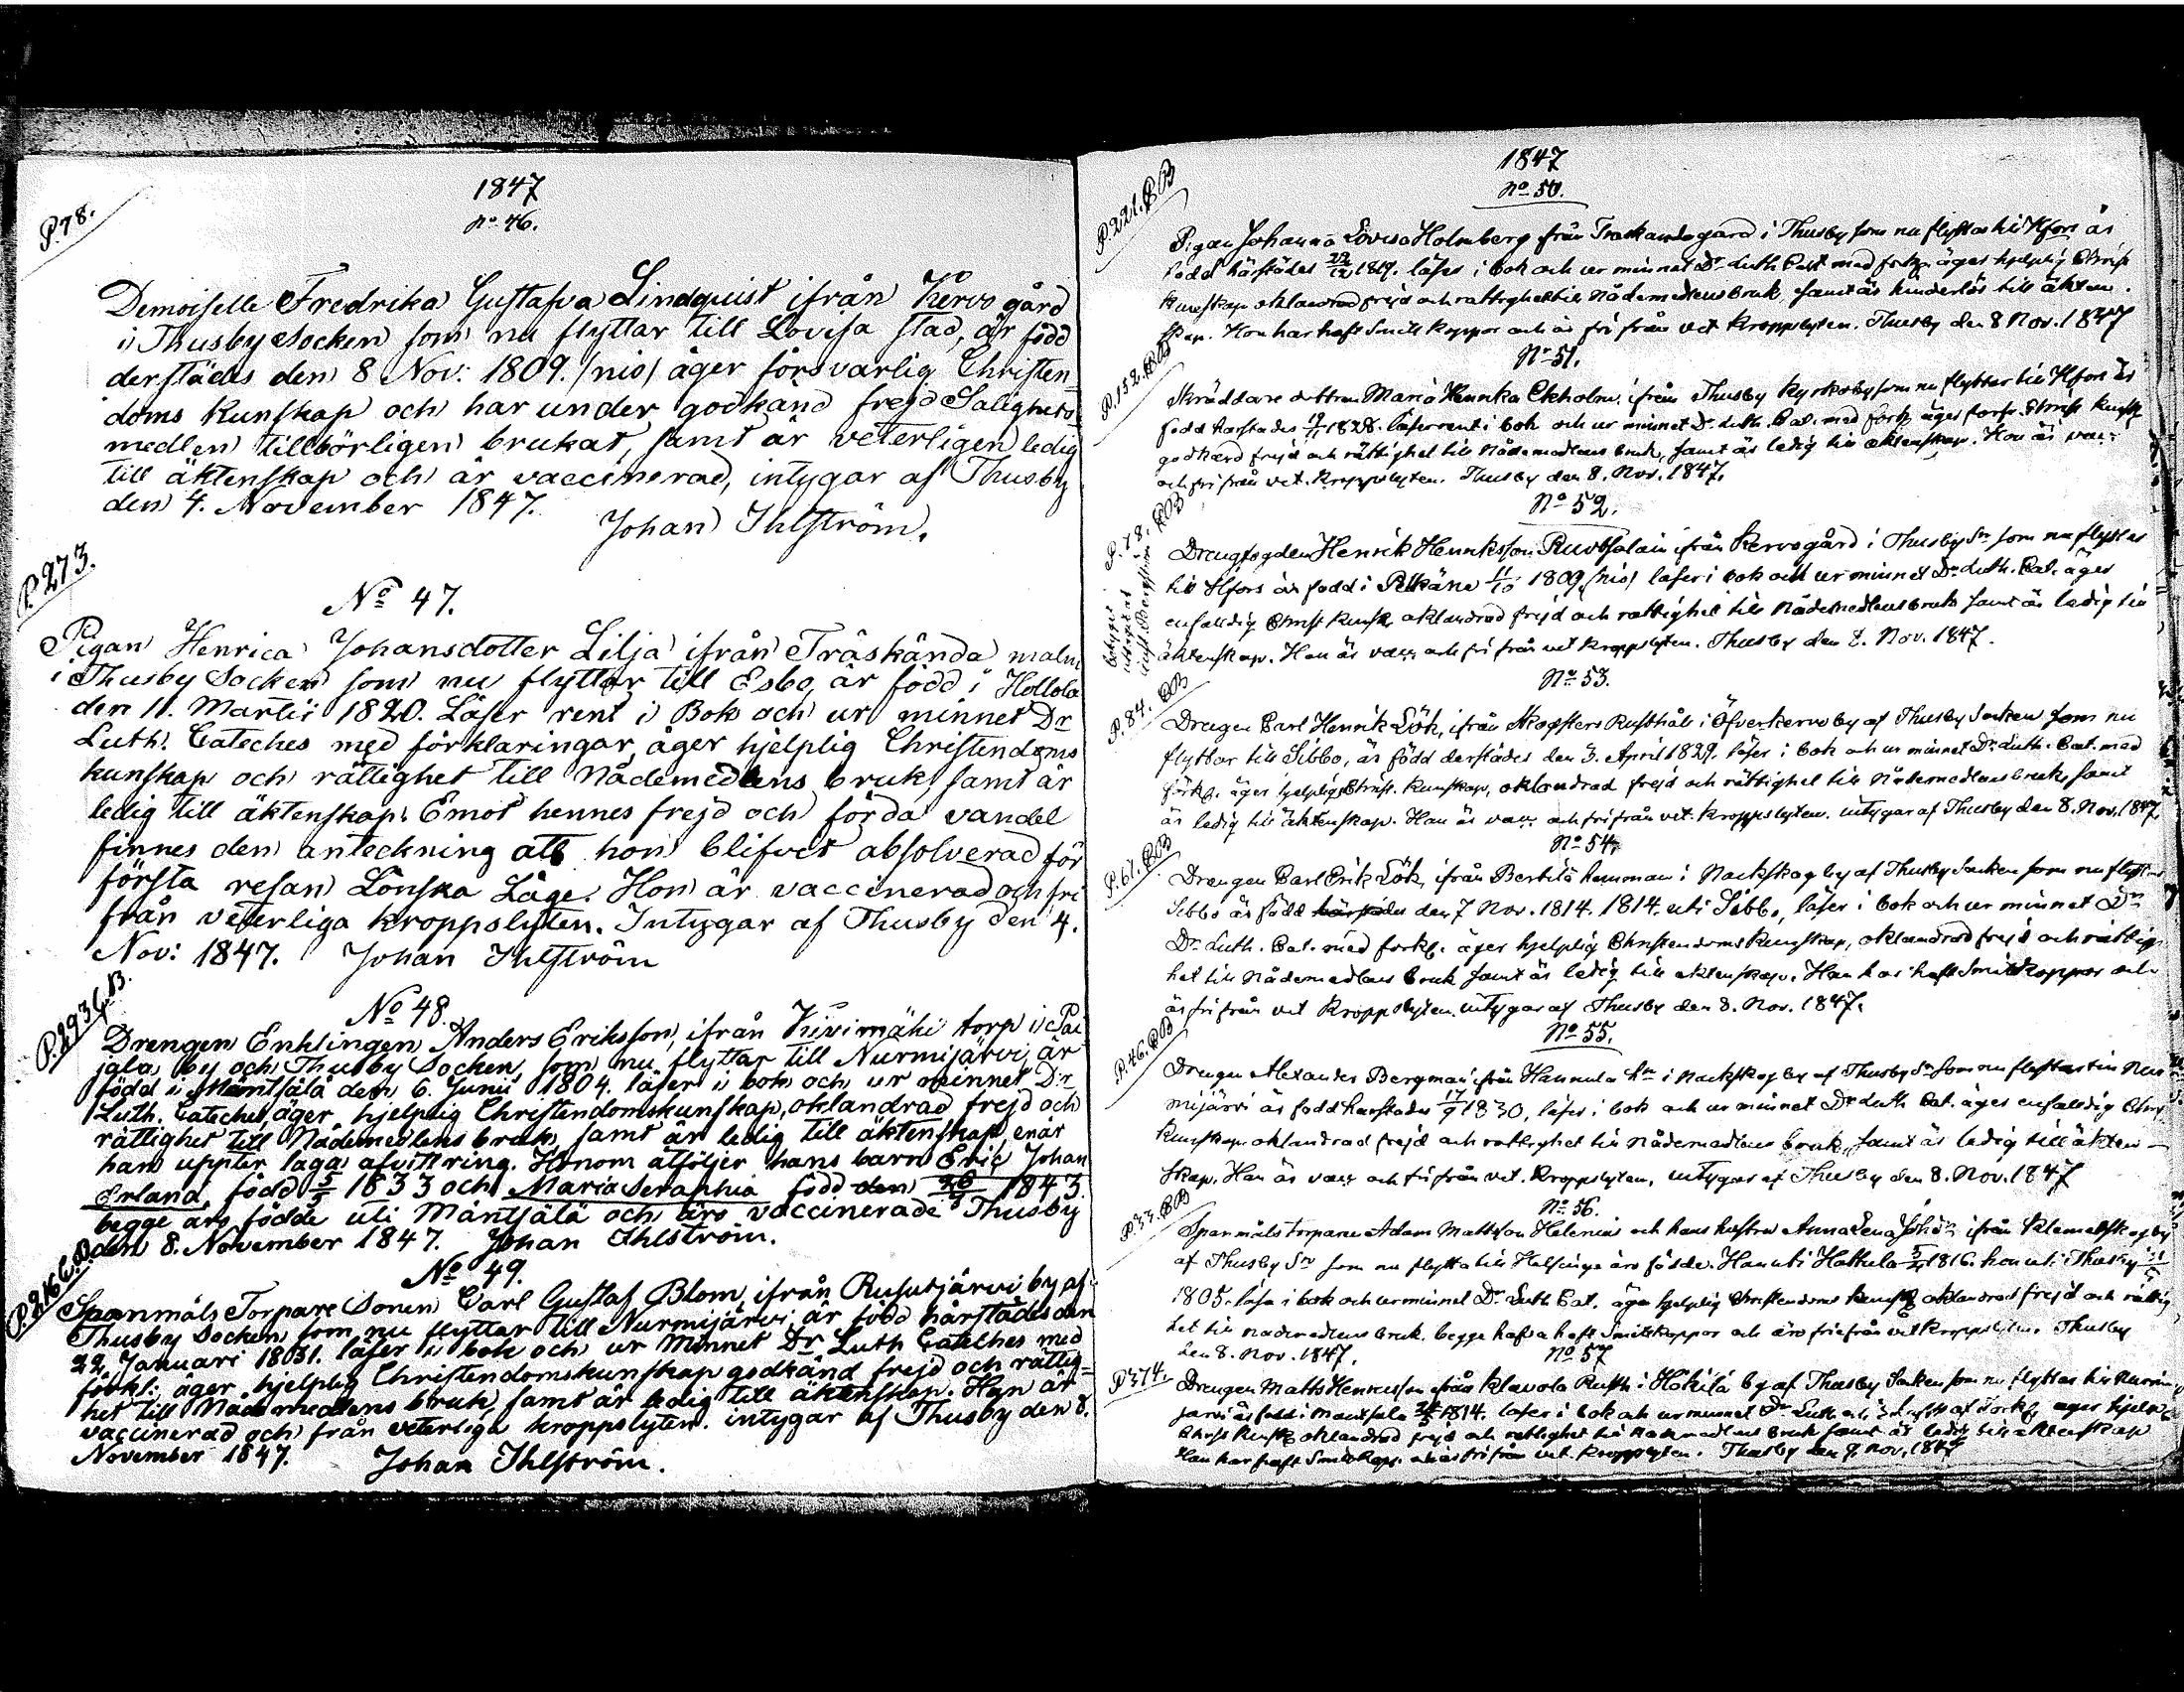 1847
No 46.
P. 78.
Demoiselle Fredrika Gustafva Lindquist ifrån Kervo gård
i Thusby Socken som nu flyttar till Lovisa stad, är född
derstädes den 8 Nov: 1809. /nio/ äger försvarlig Christen-
doms kunskap och har under godkänd frejd Salighets-
medlen tillbörligen brukat, samt är veterligen ledig
till äktenskap och är vaccinerad, intygar af Thusby
den 4. November 1847.
Johan Ihlström.
P. 273.
No 47.
Pigan Henrica Johansdotter Lilja ifrån Träskända malm
i Thusby Socken som nu flyttar till Esbo, är född i Hollola
den 11. Martii 1820. Läser rent i Bok och ur minnet Dr
Luth. Cateches med förklaringar, äger hjelplig Christendoms
kunskap och rättighet till Nådemedlens bruk, samt är
ledig till äktenskap. Emot hennes frejd och förda vandel
finnes den anteckning att hon blifvit absolverad för
första resan Lönska Läge. Hon är vaccinerad och fri
från veterliga kroppslyten. Intygar af Thusby den 4.
Nov: 1847. Johan Ihlström
P. 293 C.B.
No 48.
Drengen Enklingen Anders Eriksson, ifrån Kivimäki torp i Pai
jala by och Thusby Socken, som nu flyttar till Nurmijärvi, är
född i Mäntsälä den 6. Junii 1804. läser i bok och ur minnet Dr
Luth. Cateches, äger hjelplig Christendomskunskap, oklandrad frejd och
rättighet till Nådemedlens bruk, samt är ledig till äktenskap, enär
han uppter laga afvittring. Honom åtföljer hans barn Eric Johan
Erland, född 5/5 1833 och Maria Seraphia född den 26 1843.
begge äro födde uti Mäntsälä och äro vaccinerade Thusby
den 8. November 1847. Johan Ihlström.
P. 216 C.B.
No 49.
Spanmåls Torpare Sonen Carl Gustaf Blom ifrån Rusutjärvi by af
Thusby Socken som nu flyttar till Nurmijärvi, är född härstädes den
22 Januari 1831. läser i bok och ur Minnet Dr Luth Cateches med
förkl: äger hjelplig Christendomskunskap godkänd frejd och rättig-
het till Nådemedlens bruk, samt är ledig till äktenskap. Han är
vaccinerad och från veterliga kroppslyten. intygar af Thusby den 8.
November 1847. Johan Ihlström.
1847
No 50.
P. 221. C.B
Pigan Johanna Lovisa Holmberg från Träskända gård i Thusby som nu flyttar till Hfors är
född härstädes 1819. läser i bok och ur minnet Dr Luth Cat med förkl. äger hjelplig Christ
kunskap oklandrad frejd och rättighet till Nådemedlens bruk, samt är hinderlös till äkten-
skap. Hon har haft Smittkoppor och är fri från vet kroppslyten. Thusby den 8 Nov. 1847
No 51.
P. 152. C.B
Skräddare dottren Maria Henrika Ekholm, ifrån Thusby kyrkoby som nu flyttar till Hfors är
född härstädes 1828. läser rent i bok och ur minnet Dr Luth. Cat. med förkl. äger förs. Christ. kunsk
godkänd frejd och rättighet till Nådemedlens bruk, samt är ledig till äktenskap. Hon är vacc
och fri från vet. kroppslyten. Thusby den 8. Nov. 1847.
No 52.
P. 78. C.B
betyget
uttaget af
Drengfogden Henrik Henriksson Ruotsalain ifrån Kervo gård i Thusby Sn som nu flyttar
till Hfors är född i Pelkäne 11/10 1809 /nio/ läser i bok och ur minnet Dr Luth. Cat. äger
enfaldig Christ kunsk, oklandrad frejd och rättighet till Nådemedlens bruk samt är ledig till
äktenskap. Han är vacc och fri från vet kroppslyten. Thusby den 8. Nov. 1847.
No 53.
P. 84. C.B
Drengen Carl Henrik Lök, ifrån Skogsters Rusthåll i Öfverkervo by af Thusby Socken som nu
flyttar till Sibbo, är född derstädes den 3. April 1829. läser i bok och ur minnet Dr Luth. Cat. med
förkl. äger hjelplig Christ. kunskap, oklandrad frejd och rättighet till Nådemedlens bruk, samt
är ledig till äktenskap. Han är vacc och fri från vet. kroppslyten. intygar af Thusby den 8. Nov. 1847.
No 54.
P. 61. C.B
Drengen Carl Erik Lök, ifrån Bertils hemman i Nackskog by af Thusby Socken som nu flyttar
Sibbo är född härstädes den 7 Nov. 1814. 1814. uti Sibbo, läser i bok och ur minnet Dr
Dr Luth. Cat. med förkl. äger hjelplig Christendoms kunskap, oklandrad frejd och rättig-
het till Nådemedlens bruk samt är ledig till äktenskap. Han har haft Smittkoppor och
är fri från vet kroppslyten. intygar af Thusby den 8. Nov. 1847.
No 55.
P. 46. C.B
Drengen Alexander Bergman ifrån Hannula hn i Nackskog by af Thusby Sn som nu flyttar till Nur
mijärvi är född härstädes 17/9 1830, läser i bok och ur minnet Dr Luth Cat. äger enfaldig Christ
kunskap oklandrad frejd och rättighet till Nådemedlens bruk, samt är ledig till äkten-
skap. Han är vacc och fri från vet. kroppslyten, intygar af Thusby den 8. Nov. 1847
No 56.
P. 33. C.B
Spanmåls torparen Adam Mattsson Helenius och hans hustru Anna Lena Johdr ifrån Klemetskog by
af Thusby Sn som nu flytta till Helsinge äro födde. Han uti Hattula 1816. hon uti Thusby
1805. läsa i bok och ur minnet Dr Luth Cat. äga hjelplig Christendoms kunskp oklandrad frejd och rättig
het till nådemedlens bruk. begge hafva haft Smittkoppor och äro fria från vet kroppslyten. Thusby
den 8. Nov. 1847.
No 57
P 374.
Drengen Matts Henriksson ifrån Klavola Rusth i Hökilä by af Thusby Socken som nu flyttar till Nurmi
järvi är född i Mäntsälä 1814. läser i bok och ur minnet Dr Luth af förkl äger hjelp
Christ kunsk oklandrad frejd och rättighet till Nådemedlens bruk samt är ledig till äktenskap
Han har haft Smittkopp. och är fri från vet. kroppslyten. Thusby den 9. Nov. 1847